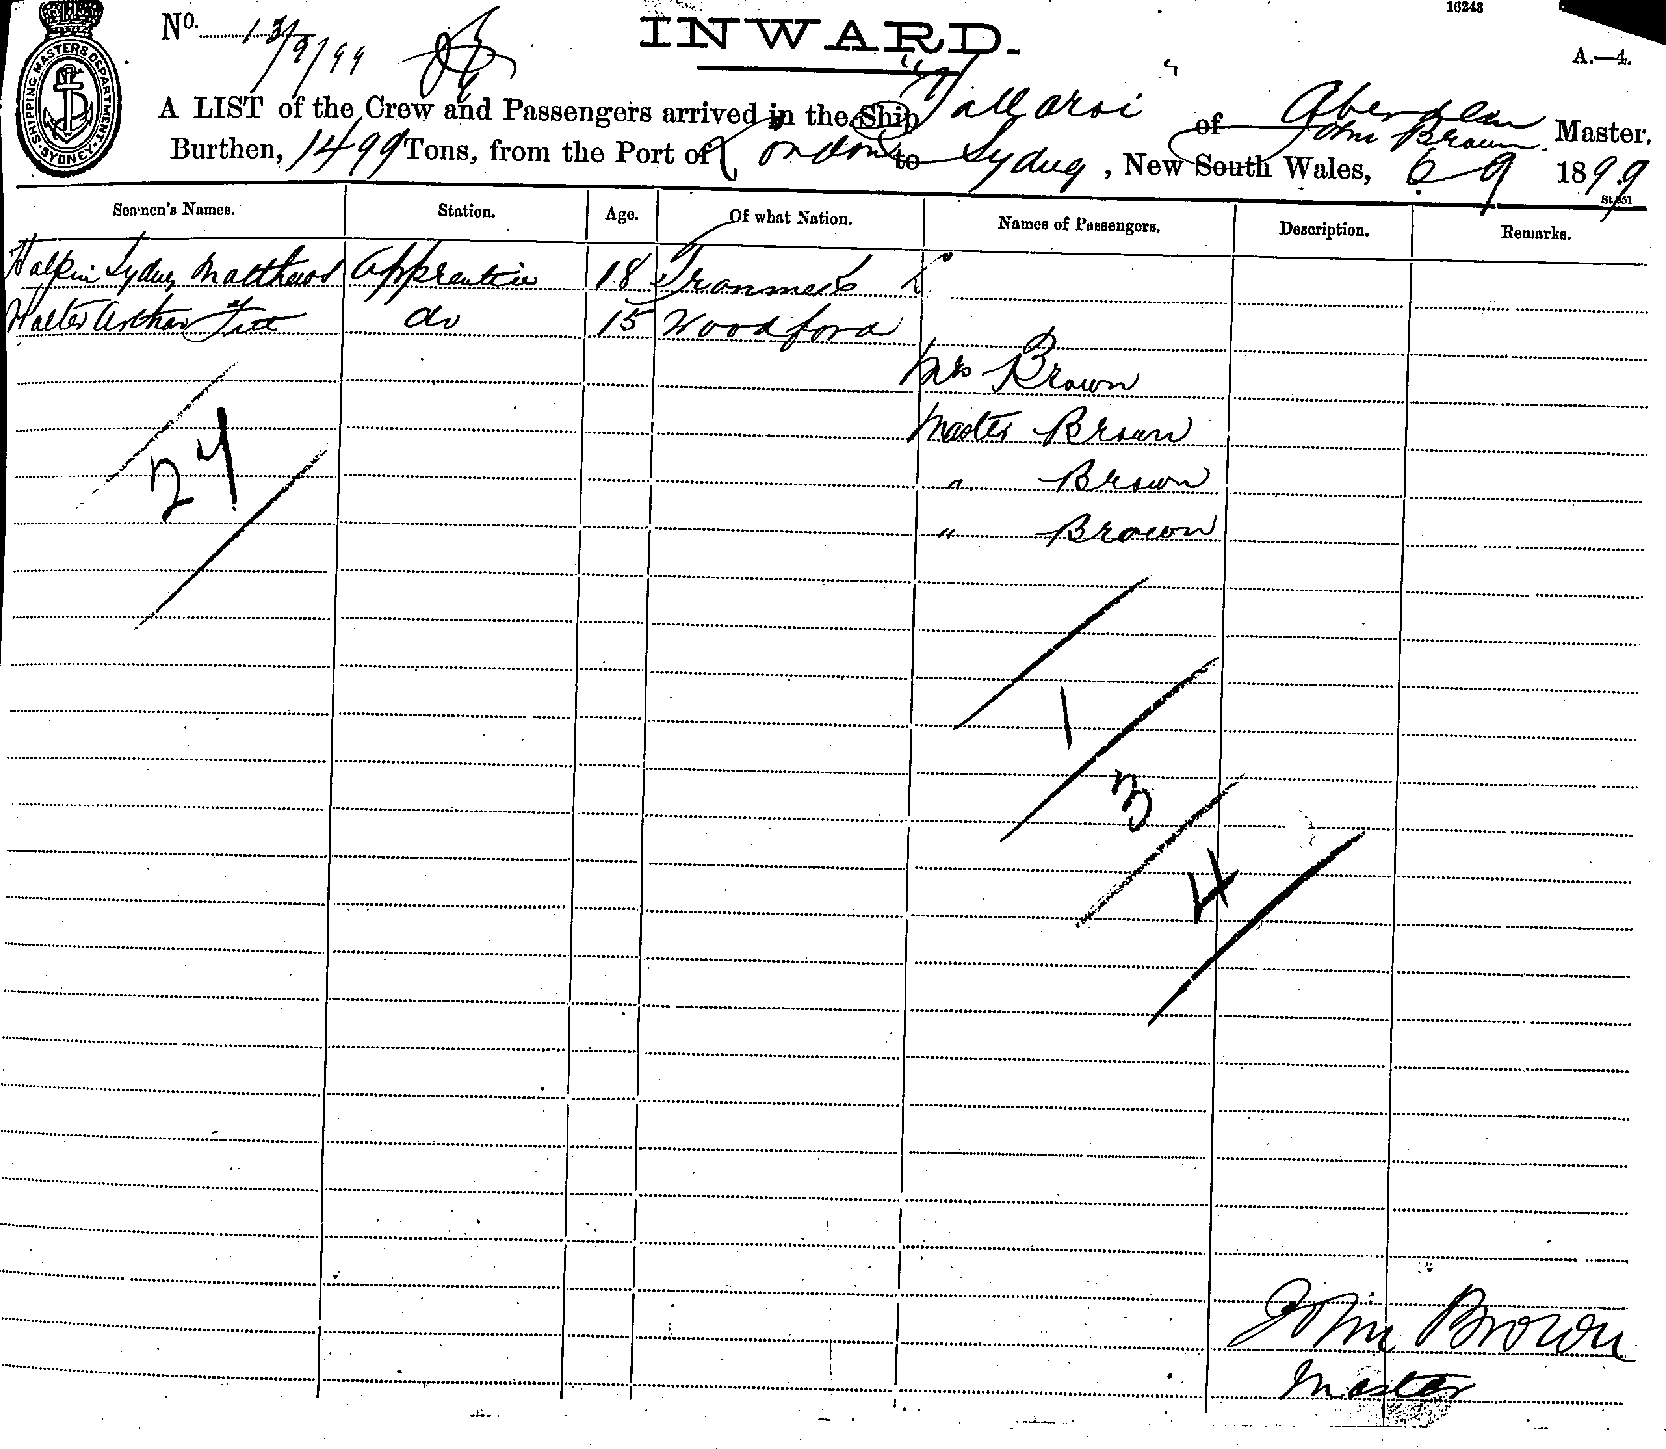 16243
No. 13/9/99
INWARD.
A.—4.
SHIPPING MASTERS DEPARTMENT SYDNEY
A LIST of the Crew and Passengers arrived in the Ship "Tallarsi" of Aberdeen
John Brown Master.
Burthen, 1499 Tons, from the Port of London to Sydney, New South Wales, 6 9 1899
Seamen's Names. Station. Age. Of what Nation. Names of Passengers. Description. Remarks.
Sydney Matthews Apprentice 18 Tranmere
Walter Arthur do 15 Woodford
Mrs Brown
Master Brown
" Brown
" Brown
24
1
3
4
John Brown
Master